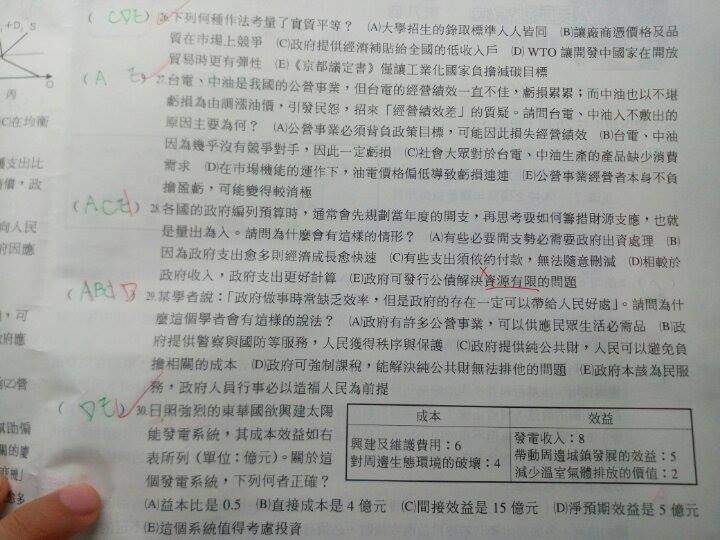 (CDE) 26.下列何種作法考量了實質平等？ (A)大學招生的錄取標準人人皆同 (B)讓廠商憑價格及品
質在市場上競爭 (C)政府提供經濟補貼給全國的低收入戶 (D) WTO 讓開發中國家在開放
貿易時更有彈性 (E)《京都議定書》僅讓工業化國家負擔減碳目標
(A E) 27.台電、中油是我國的公營事業，但台電的經營績效一直不佳，虧損累累；而中油也以不堪
虧損為由調漲油價，引發民怨，招來「經營績效差」的質疑。請問台電、中油入不敷出的
原因主要為何？ (A)公營事業必須背負政策目標，可能因此損失經營績效 (B)台電、中油
因為幾乎沒有競爭對手，因此一定虧損 (C)社會大眾對於台電、中油生產的產品缺少消費
需求 (D)在市場機能的運作下，油電價格偏低導致虧損連連 (E)公營事業經營者本身不負
擔盈虧，可能變得較消極
(ACE) 28.各國的政府編列預算時，通常會先規劃當年度的開支，再思考要如何籌措財源支應，也就
是量出為入。請問為什麼會有這樣的情形？ (A)有些必要開支勢必需要政府出資處理 (B)
因為政府支出愈多則經濟成長愈快速 (C)有些支出須依約付款，無法隨意刪減 (D)相較於
政府收入，政府支出更好計算 (E)政府可發行公債解決資源有限的問題
(AB D) 29.某學者說：「政府做事時常缺乏效率，但是政府的存在一定可以帶給人民好處」。請問為什
麼這個學者會有這樣的說法？ (A)政府有許多公營事業，可以供應民眾生活必需品 (B)政
府提供警察與國防等服務，人民獲得秩序與保護 (C)政府提供純公共財，人民可以避免負
擔相關的成本 (D)政府可強制課稅，能解決純公共財無法排他的問題 (E)政府本該為民服
務，政府人員行事必以造福人民為前提
(DE) 30.日照強烈的東華國欲興建太陽
能發電系統，其成本效益如右
表所列（單位：億元）。關於這
個發電系統，下列何者正確？
成本 效益
興建及維護費用：6
對周邊生態環境的破壞：4
發電收入：8
帶動周邊城鎮發展的效益：5
減少溫室氣體排放的價值：2
(A)益本比是 0.5 (B)直接成本是 4 億元 (C)間接效益是 15 億元 (D)淨預期效益是 5 億元
(E)這個系統值得考慮投資
+D₂ S
Q
丙
C在均衡
護支出比
債，政
向人民
府因應
，可
政府應